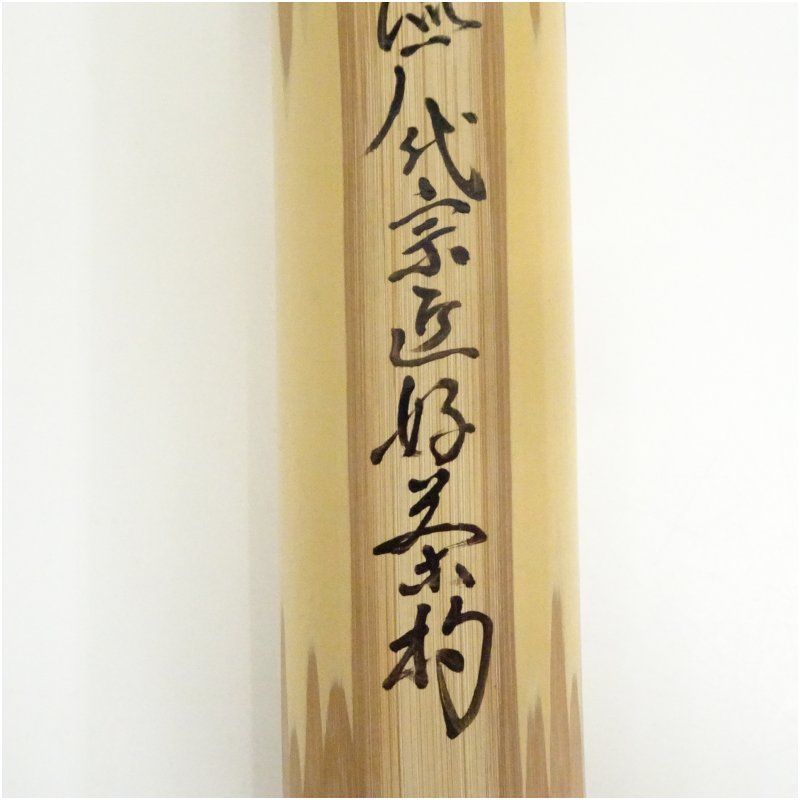 代宗匠好茶杓